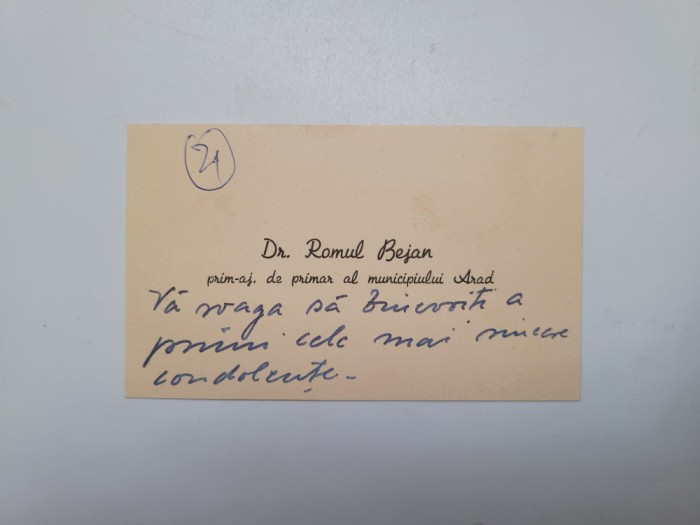 21
Dr. Romul Bejan
prim-aj. de primar al municipiului Arad
Vă roaga să binevoiti a
primi cele mai sincere
condolențe -